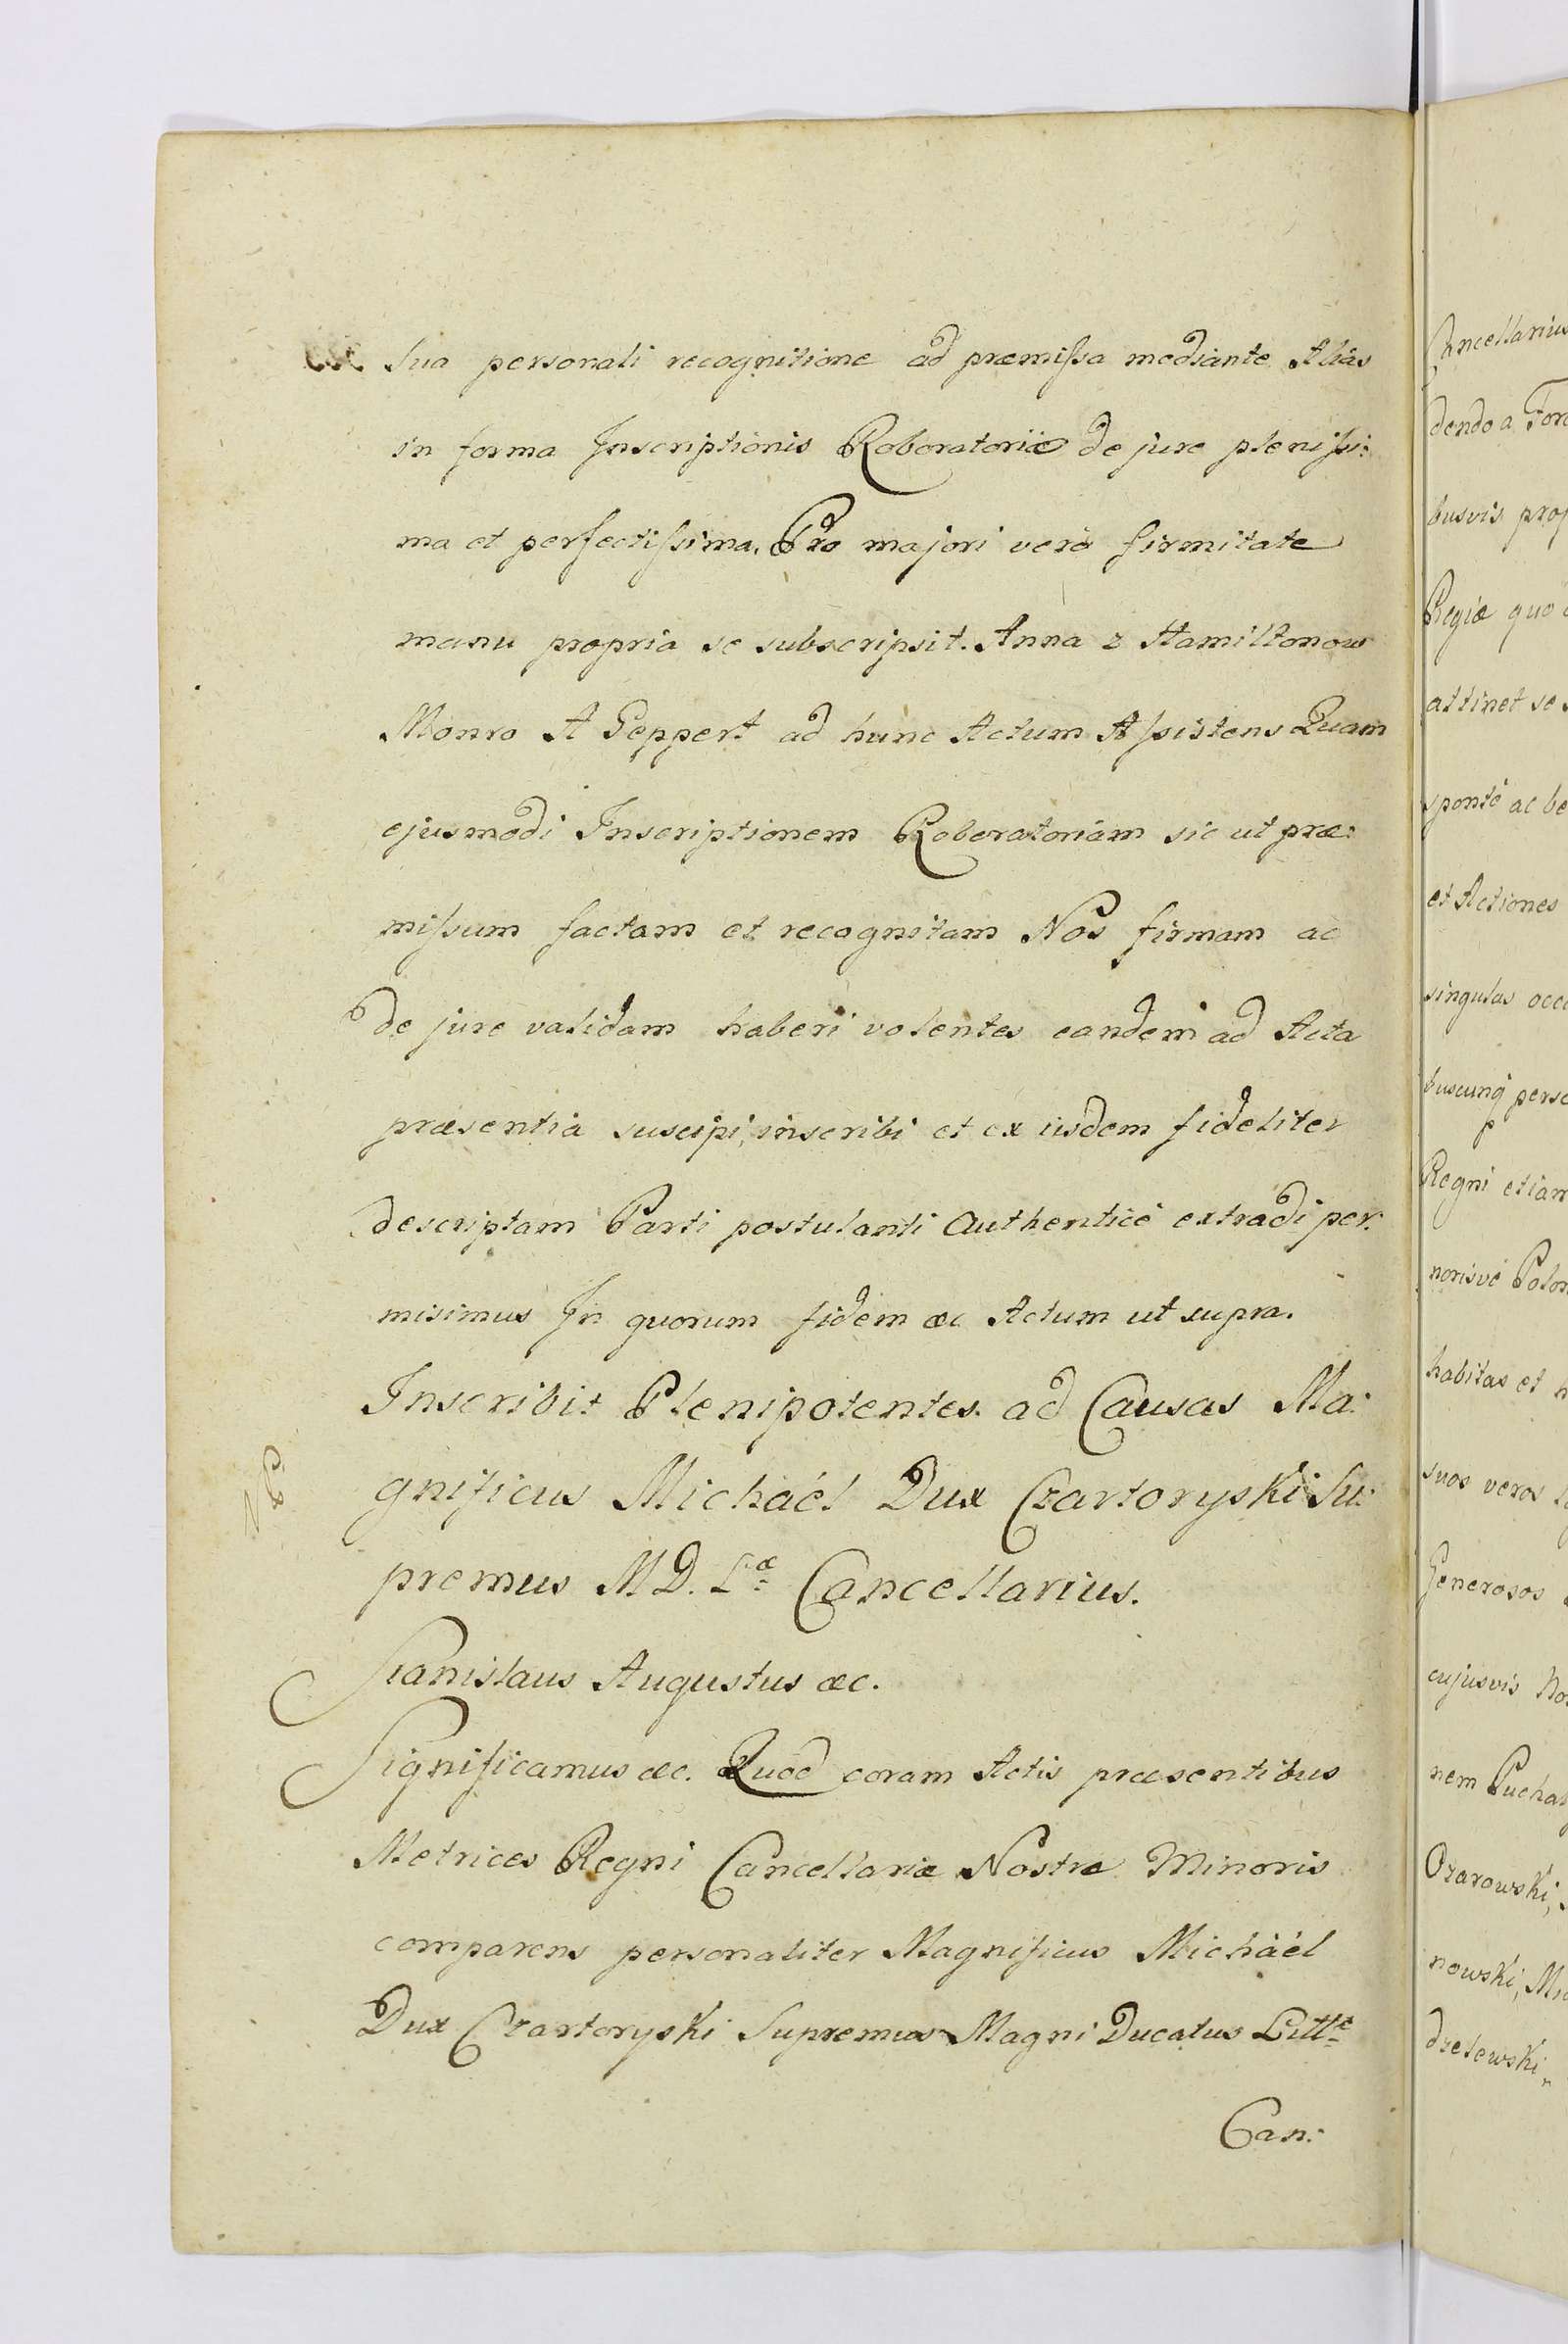 Sua personali recognitione ad præmissa mediante Aliàs
in forma Inscriptionis Roboratoriæ de jure plenissi:
ma et perfectissima. Pro majori verò firmitate
manu propria se subscripsit. Anna z Hamiltonow
Monro A Geppert ad hunc Actum Assistens Quam
ejusmodi Inscriptionem Roboratoriam sic ut præ:
missum factam et recognitam Nos firmam ac
de jure validam haberi volentes eandem ad Acta
præsentia suscipi, inscribi et ex iisdem fideliter
descriptam Parti postulanti authenticè extradi per:
misimus In quorum fidem &c Actum ut supra.
Inscribit Plenipotentes ad Causas Ma:
gnificus Michaél Dux Czartoryski Su:
premus M D. Læ Cancellarius.
Stanislaus Augustus &c.
Significamus &c. Quod coram Actis præsentibus
Metrices Regni Cancellariæ Nostræ Minoris
comparens personaliter Magnificus Michàél
Dux Czartoryski Supremus Magni Ducatus Littæ
Can:
Cancellarius
dendo a Foro
busvis prop
Regiæ quo
attinet se
sponte ac be
et Actiones
singulas occ
buscunq perso
Regni etiam
norisve Polon
habitas et h
suos veros
Generosos
cujusvis No
nem Puchal
Ozarowski,
nowski, Mic
dzelewski,